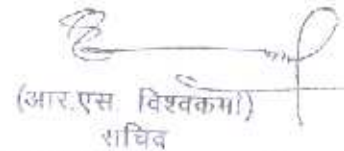 (आर.एस विश्वकर्मा)
सचिव